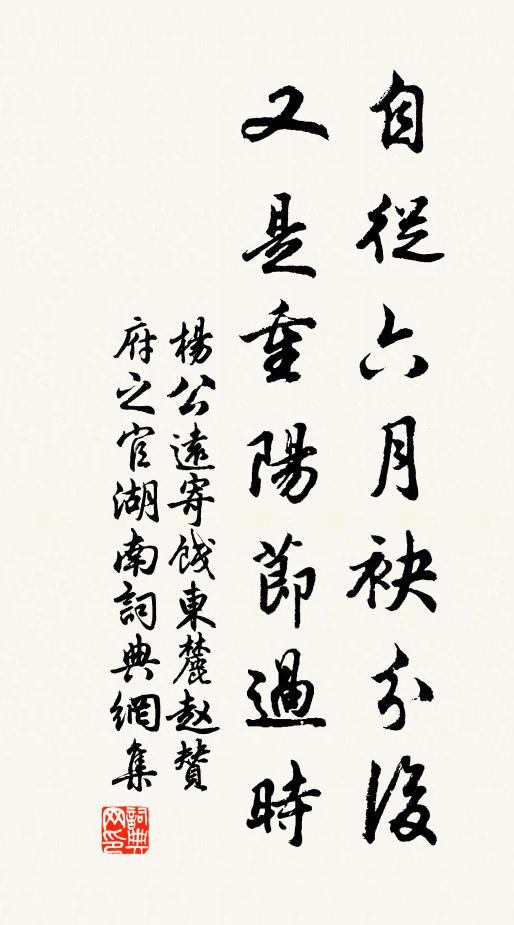 自從六月袂分後
又是重陽節過時
楊公遠寄餞東麓赵賛
府之官湖南詞典網集
詞典网印